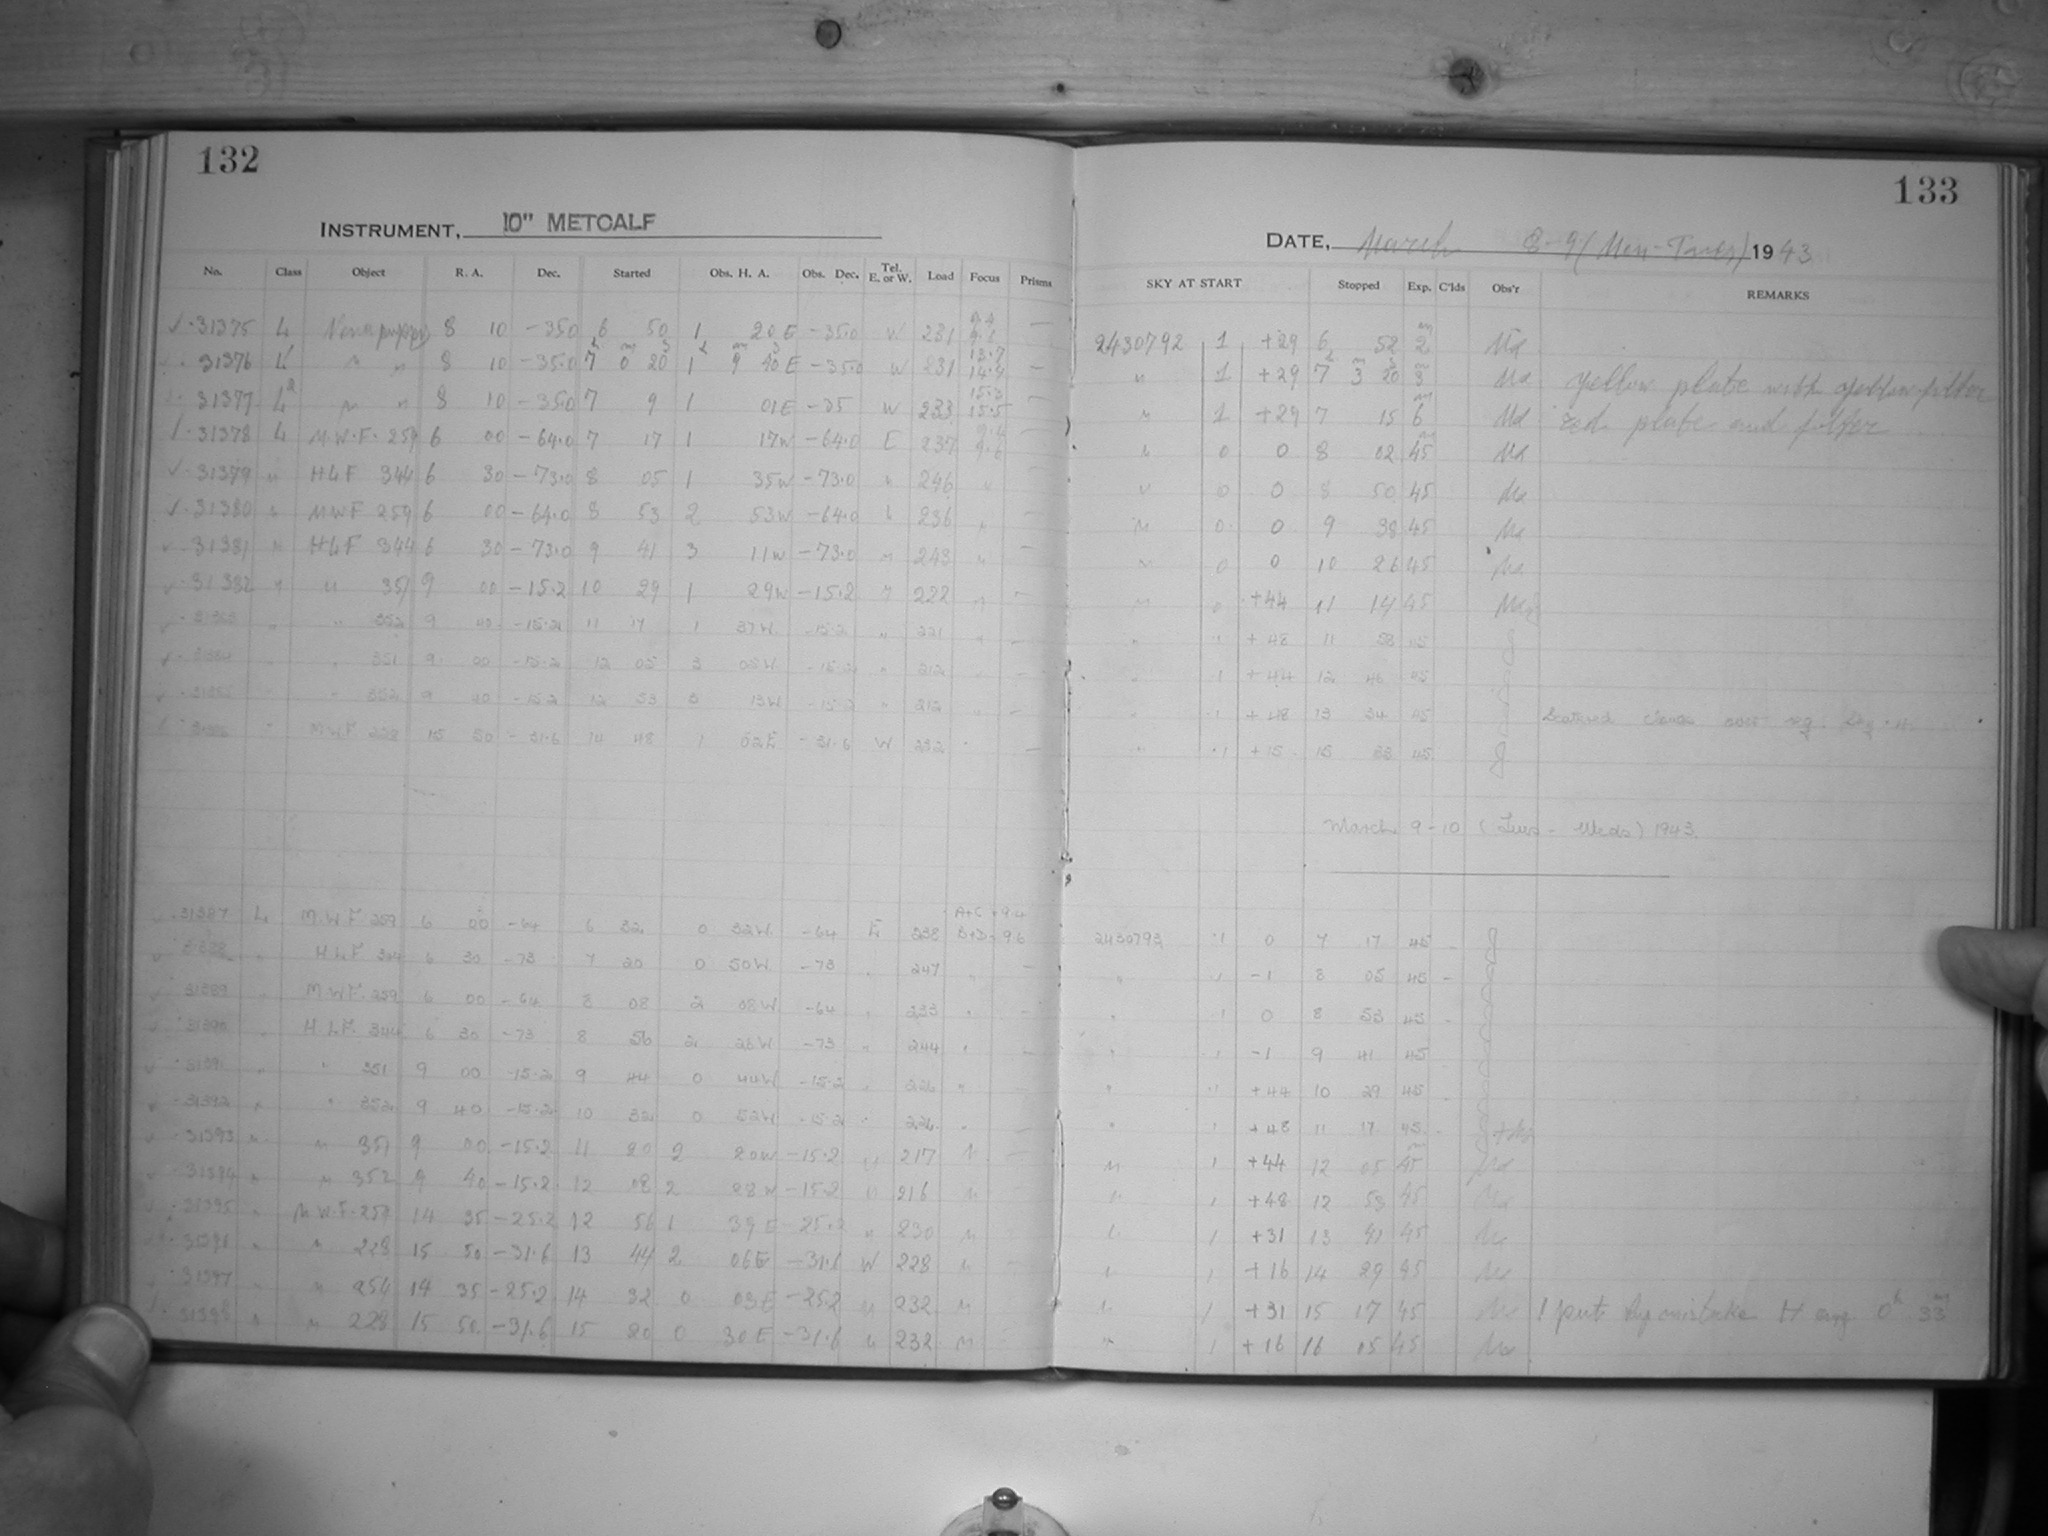 132
INSTRUMENT, 10" METCALF
No. Class Object R. A. Dec. Started Obs. H. A. Obs. Dec. Tel. E. or W. Load Focus Prisms
31375 L 8 10 -35.0 6 50 1 20 E -35.0 W 231
31376 8 10 -35.0 7 0 20 1 9 40 E -35.0 W 231 13.7 14.4
31377 8 10 -35.0 7 9 1 01E -35 W 233 15.3 15.5
31378 L M.W.F. 259 6 00 -64.0 7 17 1 17W -64.0 E 237
31379 " HLF 344 6 30 -73.0 8 05 1 35W -73.0 " 246 "
31380 " MWF 259 6 00 -64.0 8 53 2 53W -64.0 " 236 "
31381 " HLF 344 6 30 -73.0 9 41 3 11W -73.0 " 243 "
31382 " " 351 9 00 -15.2 10 29 1 29W -15.2 " 222 "
" 352 9 40 -15.2 11 1 37W -15.2 " 221 "
31384 " " 351 9 00 -15.2 12 05 3 05W -15.2 " 212 "
31385 " " 352 9 40 -15.2 12 53 3 13W -15.2 " 212 "
31386 " M.W.F. 228 15 50 -31.6 14 48 1 02E -31.6 W 232
31387 L M.W.F. 259 6 00 -64 6 32 0 32W -64 E 238 A+C 9.4 B+D 9.6
31388 " H.L.F. 344 6 30 -73 7 20 0 50W -73 " 247 "
31389 " M.W.F. 259 6 00 -64 8 08 2 08W -64 " 233 "
31390 " H.L.F. 344 6 30 -73 8 56 2 26W -73 " 244 "
31391 " " 351 9 00 -15.2 9 44 0 44W -15.2 " 226 "
31392 " " 352 9 40 -15.2 10 32 0 52W -15.2 " 226 "
31393 " " 351 9 00 -15.2 11 20 2 20W -15.2 " 217 "
31394 " " 352 9 40 -15.2 12 08 2 28W -15.2 " 216 "
31395 " M.W.F. 14 35 -25.2 12 56 1 39E -25.2 " 230 "
31396 " " 228 15 50 -31.6 13 44 2 06E -31.6 W 228 "
31397 " " 254 14 35 -25.2 14 32 0 03E -25.2 " 232 "
31398 " " 228 15 50 -31.6 15 20 0 30E -31.6 " 232 "
133
DATE, March 8-9 (Mon-Tues) 1943
SKY AT START Stopped Exp. C'lds Obs'r REMARKS
2430792 1 +29 6 52 2
" 1 +29 7 3 20 3 yellow plate with yellow filter
" 1 +29 7 15 6 red plate and filter
" 0 0 8 02 45
" 0 0 8 50 45
" 0 0 9 38 45
" 0 0 10 26 45
" 0 +44 11 14 45
" 1 +48 11 58 45
" 1 +44 12 46 45
" 1 +48 13 34 45
" 1 +15 15 33 45
March 9-10 (Tues - Weds) 1943.
2430793 1 0 7 17 45
" 1 -1 8 05 45
" 1 0 8 53 45
" 1 -1 9 41 45
" 1 +44 10 29 45
" 1 +48 11 17 45
" 1 +44 12 05 45
" 1 +48 12 53 45
" 1 +31 13 41 45
" 1 +16 14 29 45
" 1 +31 15 17 45 I put by mistake H ang 0h 33m
" 1 +16 16 05 45